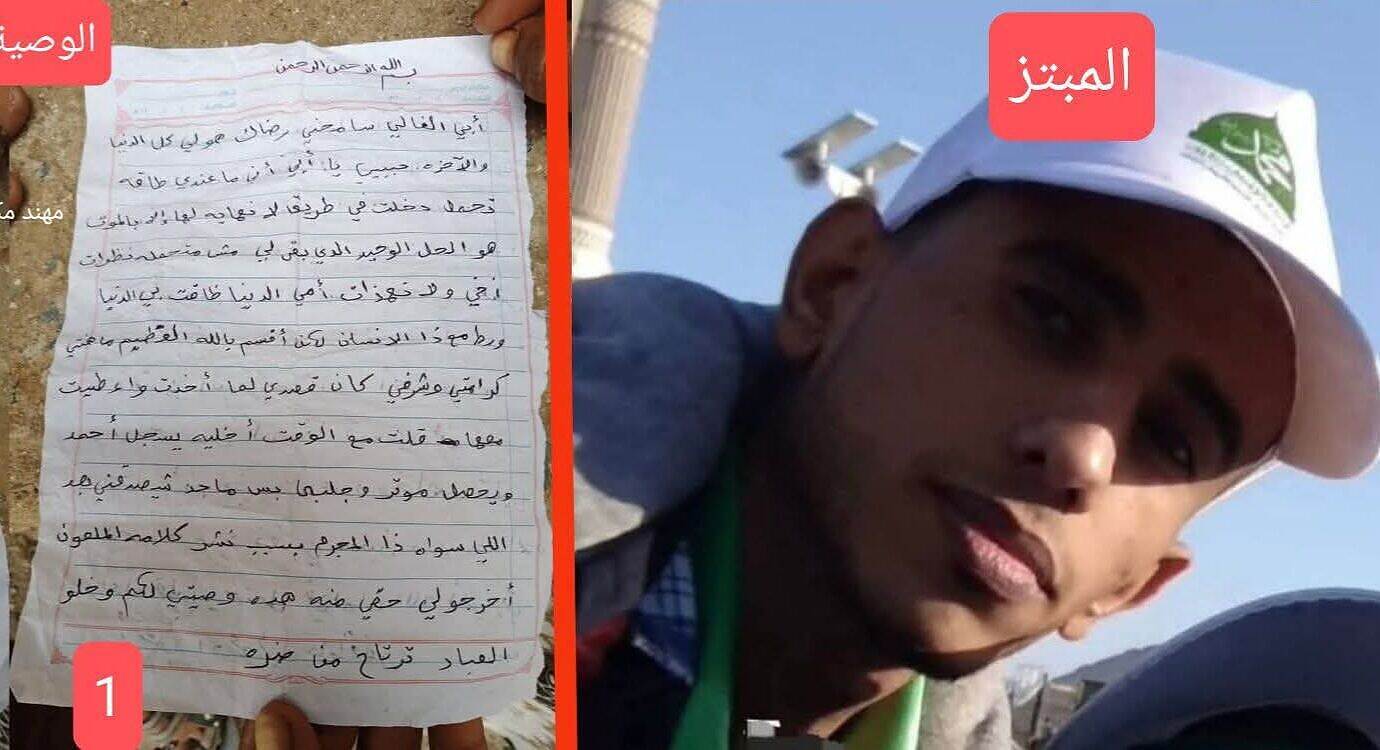 الوصية
بسم الله الرحمن الرحيم
أبي الغالي سامحني رضاك هو لي كل الدنيا
والآخره حبيبي يا أبي أني ما عندي طاقه
تحمل دخلت في طريق لا نهايه لها إلا بالموت
هو الحل الوحيد الذي بقى لي مش متحمله نظرات
أخي ولا نهزات أمي الدنيا ظاقت بي الدنيا
ذا الانسان لكن أقسم بالله العظيم ما خنتي
كرامتي وشرفي كان قصدي لما أخذت واعطيت
معها قلت مع الوقت أخليه يسجل أحمد
ويحصل موتر وجلبها بس ماحد شيصدقني بعد
اللي سواه ذا المجرم بسبب نشر كلامه الملعون
أخرجولي حقي منه هذه وصيتي لكم وخلو
العباد ترتاح من ضره
1
مهند
المبتز
محمد